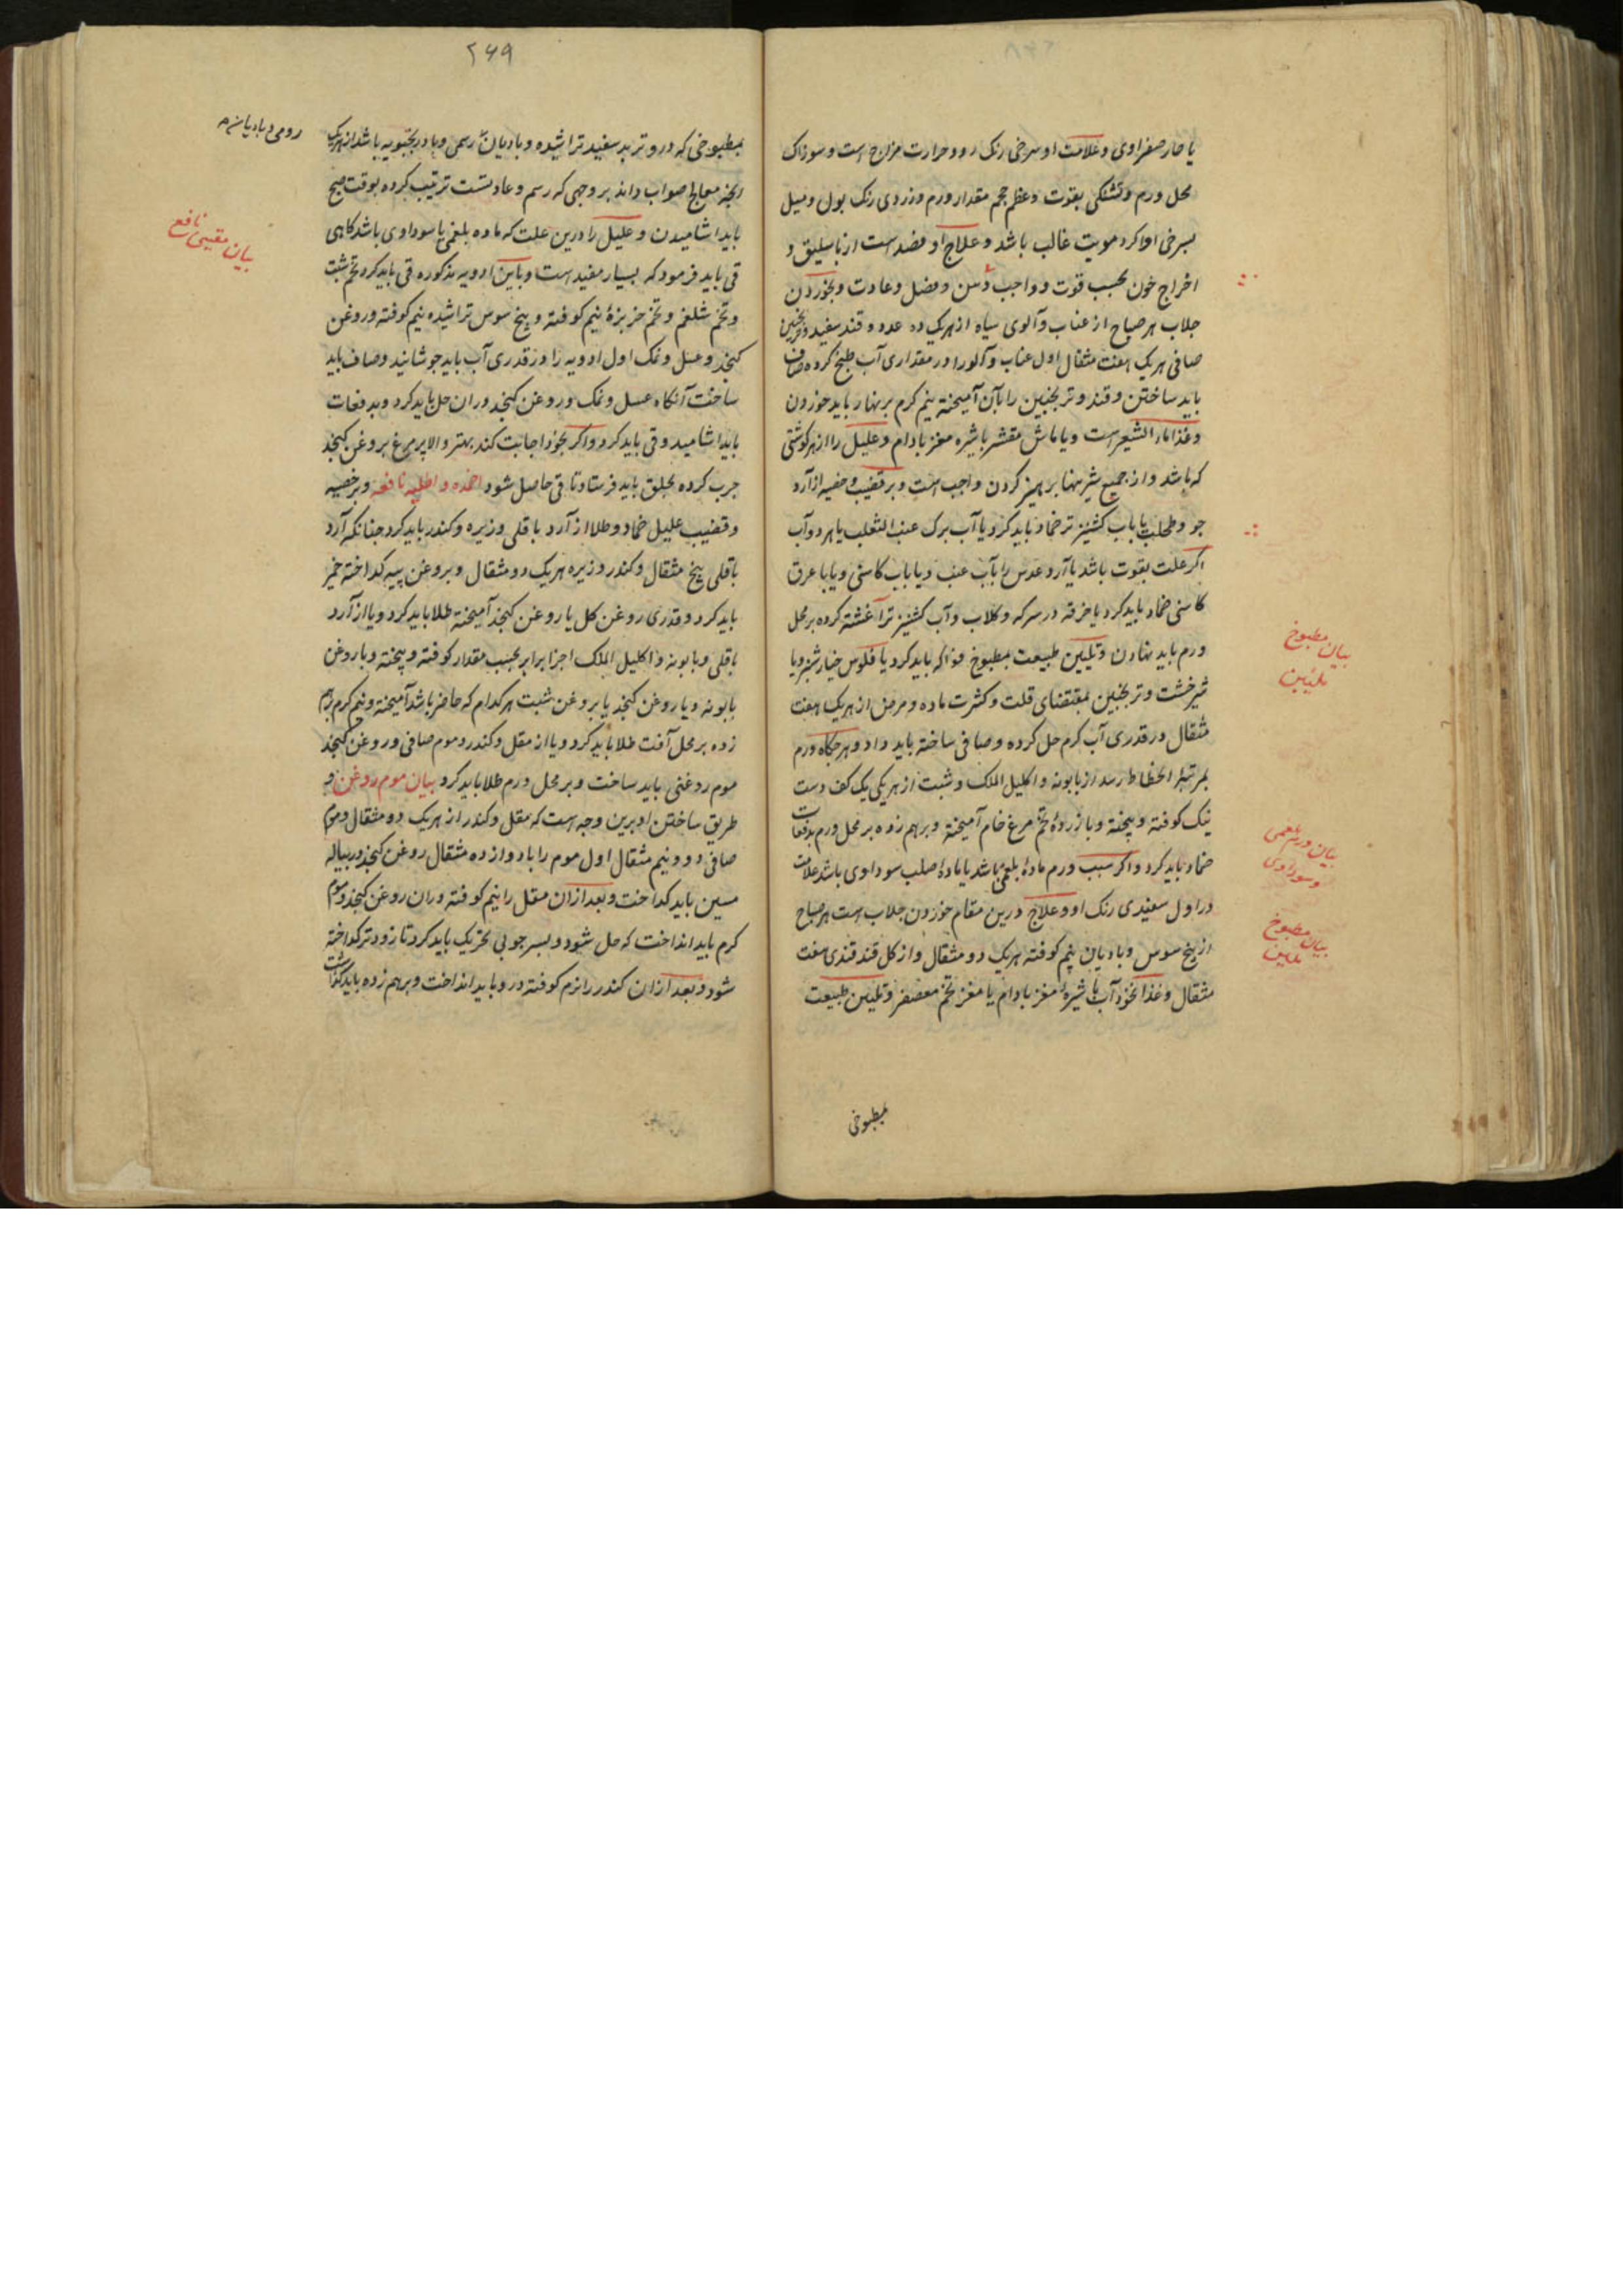 یا حار صفراوی و علامت او سرخی رنک رو و حرارت مزاج است و سوزناک
محل ورم و تشنکی بقوت و عظم حجم مقدار ورم و زردی رنک بول و میل
بسرخی اوا کر دمویت غالب باشد و علاج او فصد است از باسلیق و
اخراج خون بحسب قوت و واجب و سن و فصل و عادت و بخوردن
جلاب هر صباح از عناب و آلوی سیاه از هریک ده عدد و قند سفید و ترنجبین
صافی هریک هفت مثقال اول عناب و آلو را در مقداری آب طبخ کرده صاف
باید ساختن و قند و ترنجبین را بآن آمیخته نیم کرم بر نهار باید خوردن
و غذا ماء الشعیر است و یا ماش مقشر با شیره مغز بادام و علیل را از هر کوشتی
که باشد و از جمیع شیرینها پرهیز کردن واجب است و بر قضیب و خصیه از آرد
جو و طحلب با آب کشنیز تر ضماد باید کرد یا آب برک عنب الثعلب یا هر دو آب
اکر علت بقوت باشد یا آرد عدس را بآب عنب و یا باب کاسنی و یا با عرق
کاسنی ضماد باید کرد یا خرقه در سرکه و کلاب و آب کشنیز تر آغشته کرده بر محل
ورم باید نهادن و تلیین طبیعت بمطبوخ فواکه باید کرد یا فلوس خیار شنبر و یا
شیرخشت و ترنجبین بمقتضای قلت و کثرت ماده و مرض از هریک هفت
مثقال در قدری آب کرم حل کرده و صافی ساخته باید داد و هر جکاه ورم
بمرتبه انحطاط رسد از بابونه و اکلیل الملک و شبت از هریکی یک کف دست
نیک کوفته و بیخته و با زردهٔ تخم مرغ خام آمیخته و برهم زده بر محل ورم بدفعات
ضماد باید کرد و اکر سبب ورم مادهٔ بلغمی باشد یا مادهٔ صلب سوداوی باشد علامت
در اول سفیدی رنک او و علاج درین مقام خوردن جلاب است هر صباح
از بیخ سوس و بادیان نیم کوفته هریک دو مثقال و از کل قند قندی هفت
مثقال و غذا نخود آب با شیرهٔ مغز بادام یا مغز تخم معصفر و تلیین طبیعت
بمطبوخی
بیان مطبوخ
تلیین
بیان ورم بلغمی
و سوداوی
بیان مطبوخ
تلیین
۲۶۹
بمطبوخی که درو تربد سفید تراشیده و بادیان رسمی و بادرنجبویه باشد از هریک
رومی و بادیان
انچه معالج صواب داند بر وجهی که رسم و عادتست ترتیب کرده بوقت صبح
باید اشامیدن و علیل را درین علت که ماده بلغمی یا سوداوی باشد کاهی
قی باید فرمود که بسیار مفید است و باین ادویه مذکوره قی باید کرد تخم شبت
و تخم شلغم و تخم خربزهٔ نیم کوفته و بیخ سوس تراشیده نیم کوفته و روغن
کنجد و عسل و نمک اول ادویه را در قدری آب باید جوشانید و صاف باید
ساخت آنکاه عسل و نمک و روغن کنجد دران حل باید کرد و بدفعات
باید اشامید و قی باید کرد و اکر بخود اجابت کند بهتر و الا پر مرغ بروغن کنجد
جرب کرده بحلق باید فرستاد تا قی حاصل شود اضمده و اطلیه نافعه و بر خصیه
و قضیب علیل ضماد و طلا از آرد باقلی و زیره و کندر باید کرد جنانکه آرد
باقلی پنج مثقال و کندر و زیره هریک دو مثقال و بروغن پیه کداخته خمیر
باید کرد و قدری روغن کل یا روغن کنجد آمیخته طلا باید کرد و یا از آرد
باقلی و بابونه و اکلیل الملک اجزا برابر بحسب مقدار کوفته و بیخته و با روغن
بابونه و یا روغن کنجد یا بروغن شبت هر کدام که حاضر باشد آمیخته و نیم کرم برهم
زده بر محل آفت طلا باید کرد و یا از مقل و کندر و موم صافی و روغن کنجد
موم روغنی باید ساخت و بر محل ورم طلا باید کرد بیان موم روغن و
طریق ساختن او برین وجه است که مقل و کندر از هریک دو مثقال و موم
صافی دو و نیم مثقال اول موم را با دوازده مثقال روغن کنجد در پیاله
مسین باید کداخت و بعد ازان مقل را نیم کوفته دران روغن کنجد و موم
کرم باید انداخت که حل شود و بسر جوبی تحریک باید کرد تا زودتر کداخته
شود و بعد ازان کندر را نرم کوفته درو باید انداخت و برهم زده باید کذاشت
بیان مقیی نافع